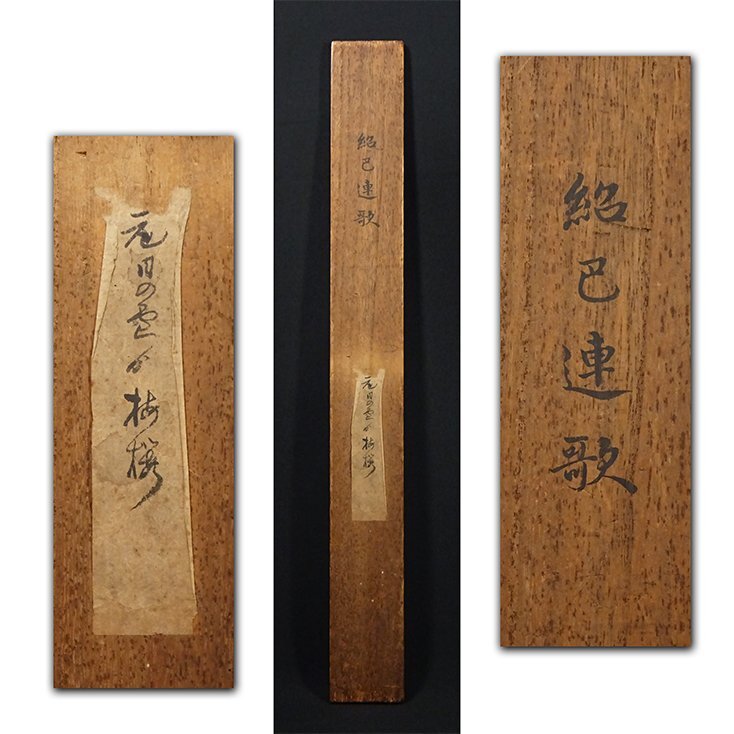 紹巴連歌
元日の雪か梅桜
元日の雪か梅桜
紹巴連歌